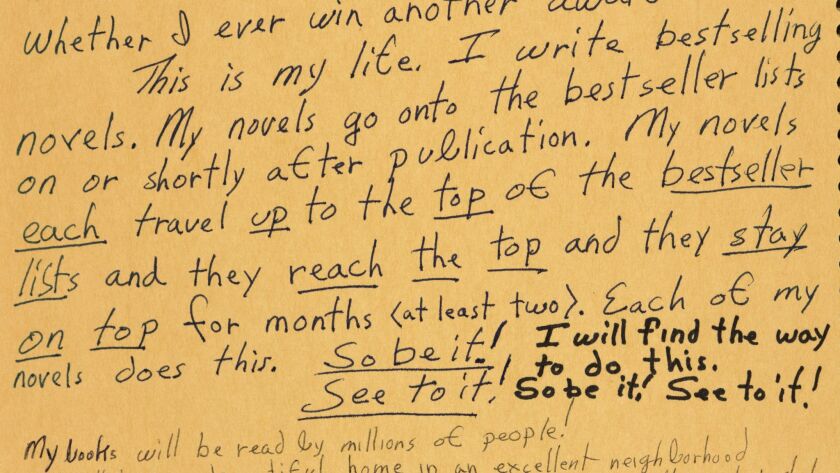 whether I ever win another
This is my life. I write bestselling
novels. My novels go onto the bestseller lists
on or shortly after publication. My novels
each travel up to the top of the bestseller
lists and they reach the top and they stay
on top for months (at least two). Each of my
novels does this. So be it! I will find the way
See to it! to do this.
So be it! See to it!
My books will be read by millions of people!
home in an excellent neighborhood